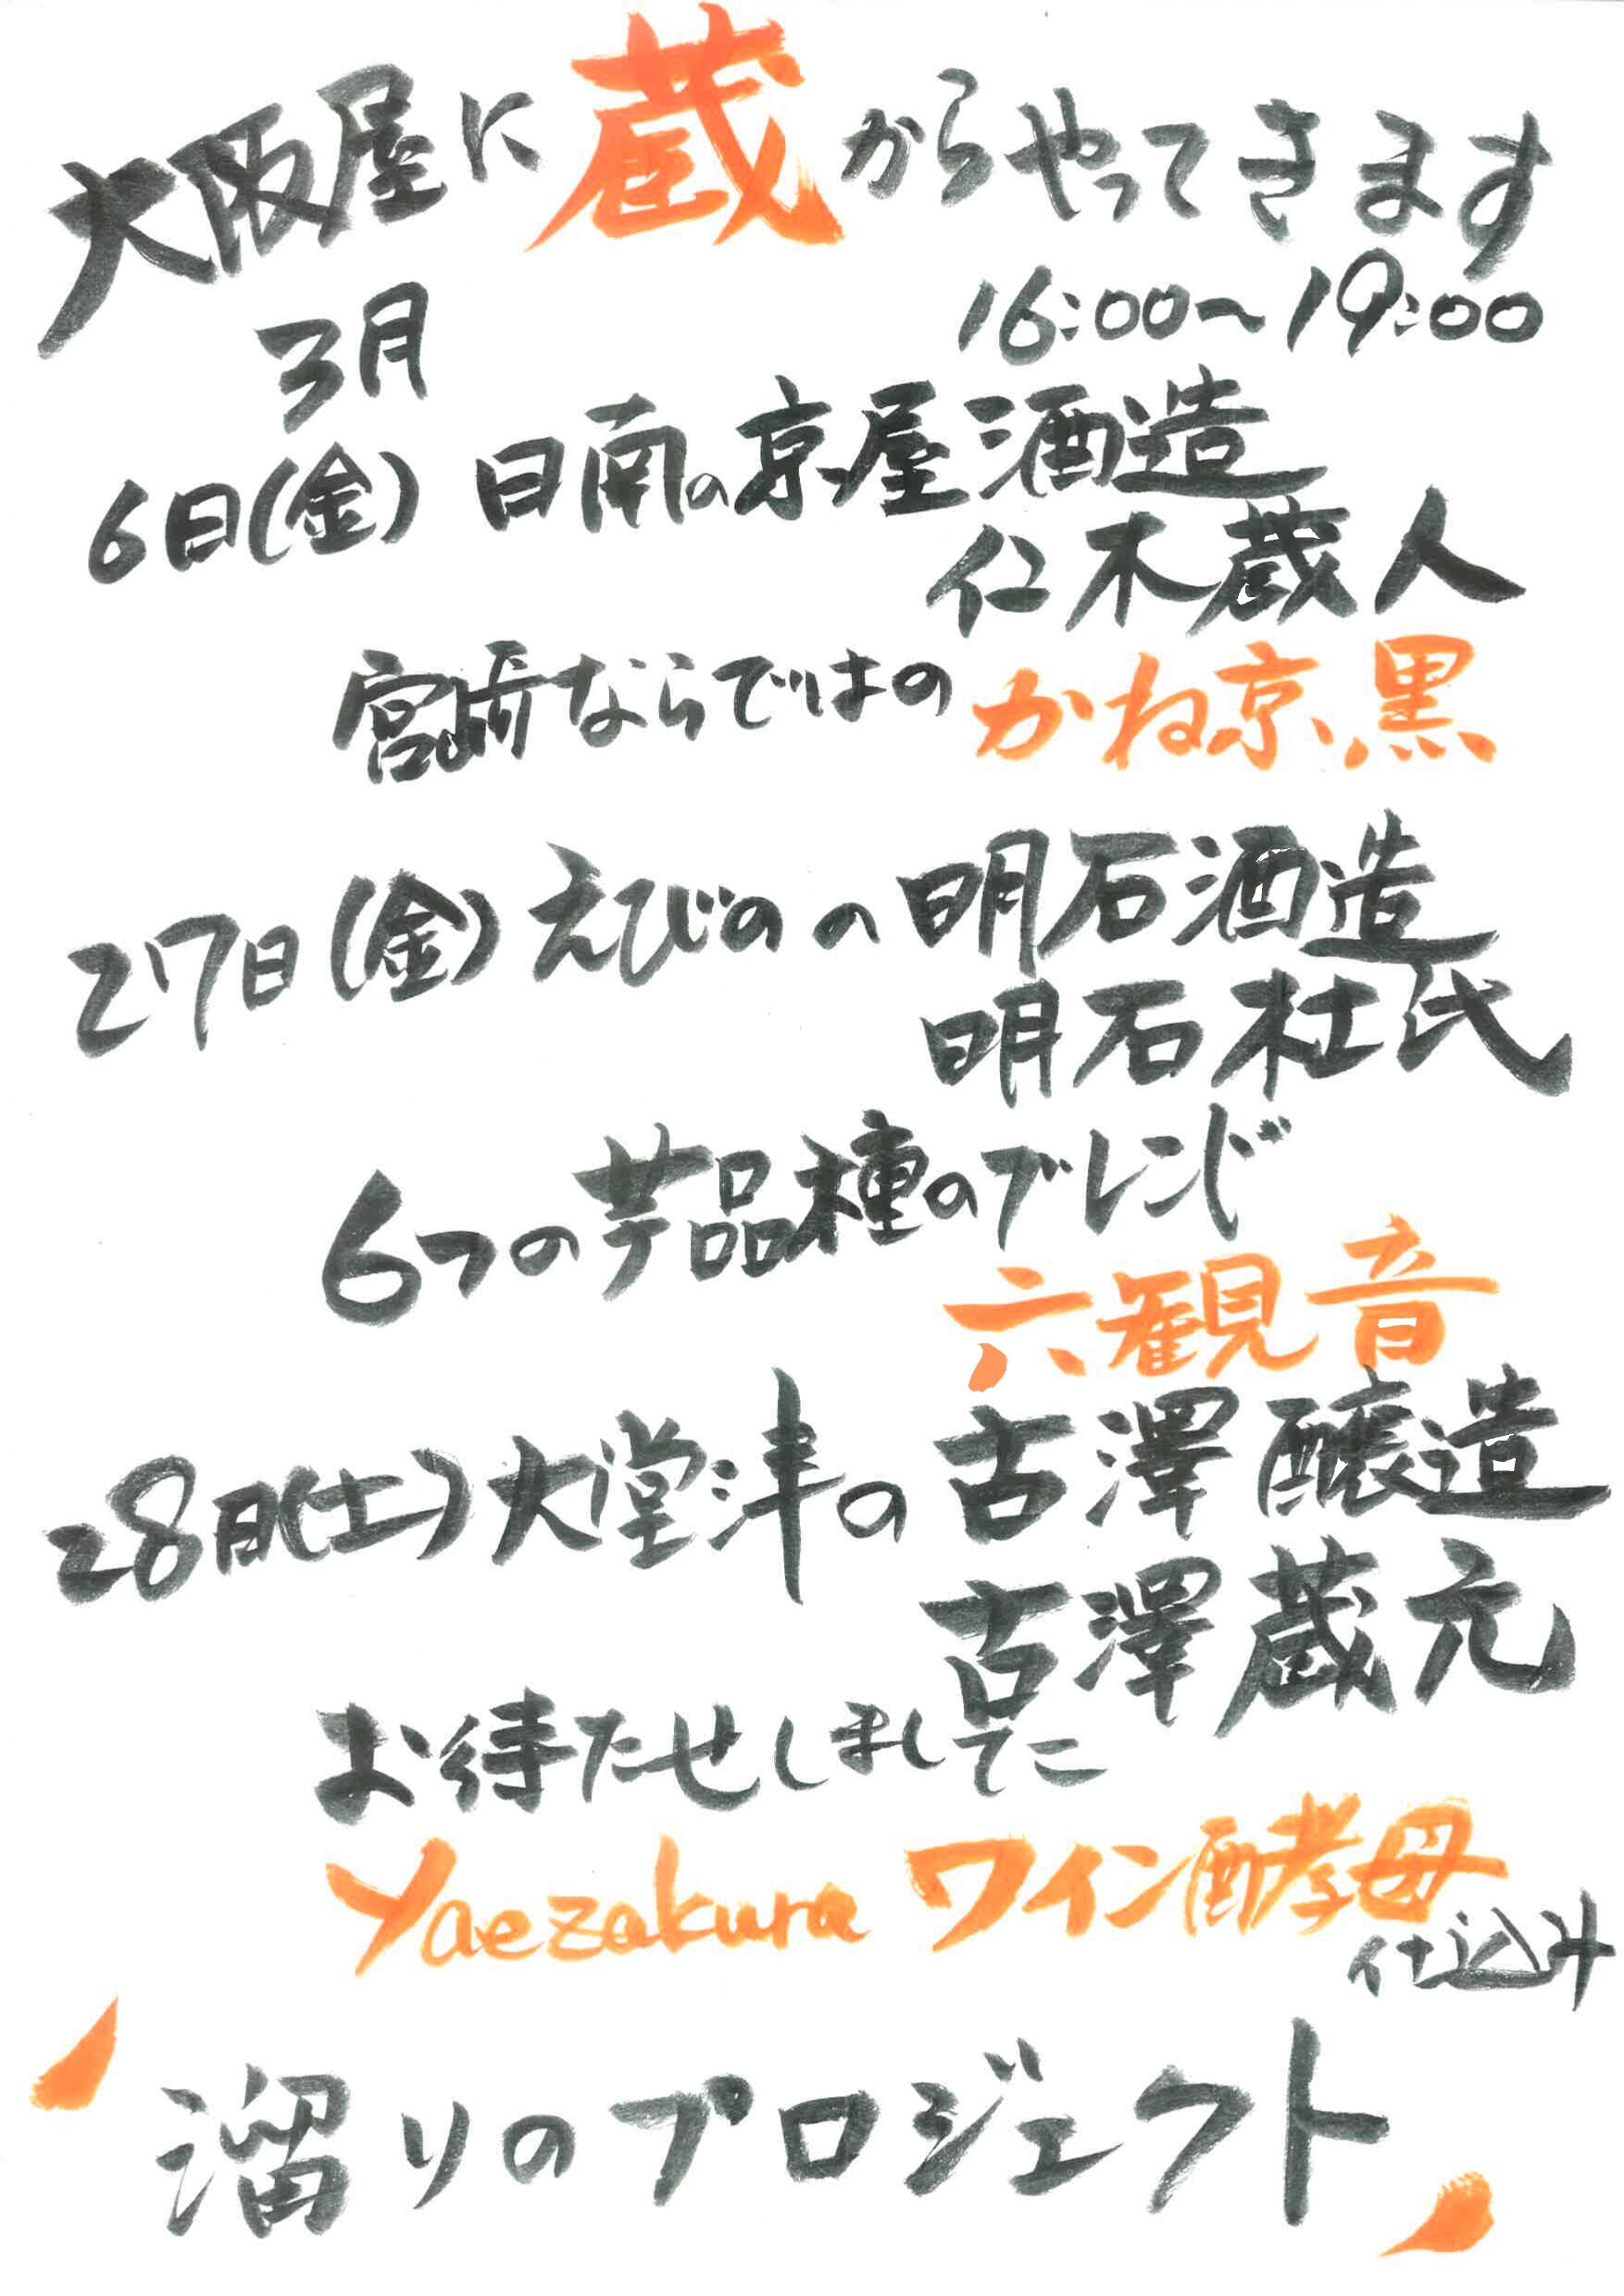 大阪屋に蔵からやってきます
3月 16:00〜19:00
6日(金) 日南の京屋酒造
仁木蔵人
宮崎ならではのかね京、黒
27日(金) えびのの明石酒造
明石杜氏
6つの芋品種のブレンド
六観音
28日(土) 大堂津の古澤醸造
古澤蔵元
お待たせしました
Yaezakura ワイン酵母
仕込み
溜りのプロジェクト